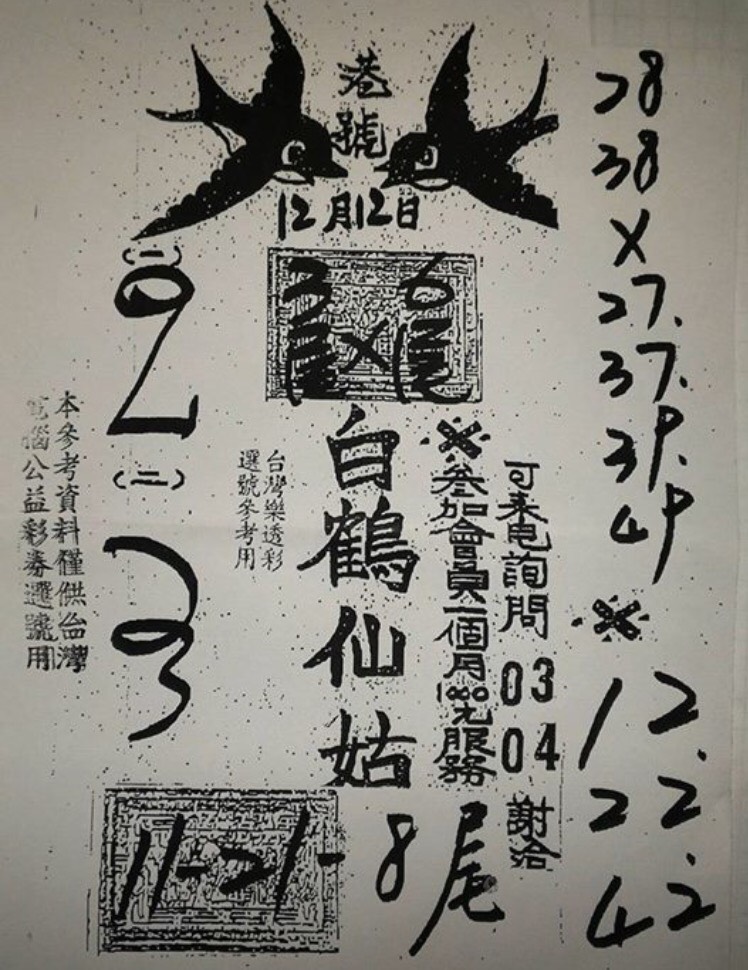 港
號
12月12日
白鶴仙姑
台灣樂透彩
選號參考用
※參加會員一個月1000元服務
可來电詢問 03 04 謝洽
本參考資料僅供台灣
電腦公益彩券選號用
(一)
(二)
03
11-21-8尾
28
38
X
27.
37.
39.
49
※
12.
22.
42